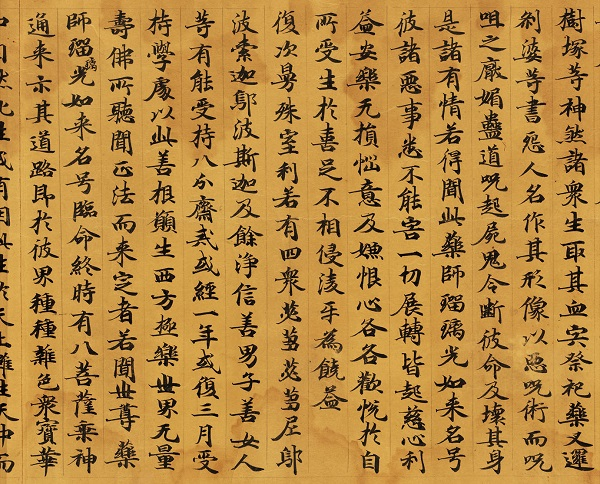 樹塚等神煞諸衆生取其血宍祭祀藥叉邏
剎婆等書怨人名作其形像以惡呪術而呪
咀之厭媚蠱道呪起屍鬼令斷彼命及壞其身
是諸有情若得聞此藥師瑠璃光如来名号
彼諸惡事悉不能害一切展轉皆起慈心利
益安樂无損惱意及嫌恨心各各歡悅於自
所受生於喜足不相侵淩乎為饒益
復次曼殊室利若有四衆苾蒭苾蒭尼鄔
波索迦鄔波斯迦及餘淨信善男子善女人
等有能受持八分齋戒或經一年或復三月受
持學處以此善根願生西方極樂世界无量
壽佛所聽聞正法而未定者若聞世尊藥
師瑠璃光如来名号臨命終時有八菩薩乘神
通来示其道路即於彼界種種雜色衆寶華
中自然化生或有因此生於天上雖生天中而